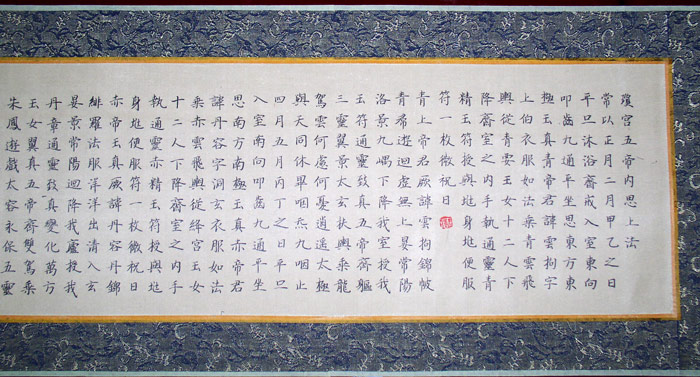 瓊宮五帝內思上法
常以正月二月甲乙之日
平旦沐浴齋戒入室東向
叩齒九通平坐思東方東
極玉真青帝君諱雲拘字
上伯衣服如法乘青雲飛
輿從青雲玉女十二人下
降齋室之内手執通靈青
精玉符授與兆身兆便服
符一枚微祝曰
青上帝君厥諱雲拘錦帔
青帬遊迴虛無上晏常陽
洛景九嵎下降我室授我
玉符通靈致真五帝齊軀
三靈翼景太玄扶輿乘龍
駕雲何慮何憂逍遙太極
與天同休畢咽炁九咽止
四月五月丙丁之日平旦
入室南向叩齒九通平坐
思南方南極玉真赤帝君
諱丹容字洞玄衣服如法
乘赤雲飛輿從絳宮玉女
十二人下降齋室之内手
執通靈赤精玉符授與兆
身兆便服符一枚微祝曰
赤帝玉真厥諱丹容丹錦
緋羅法服洋洋出清入玄
晏景常陽迴降我廬授我
丹章通靈致真變化萬方
玉女翼真五帝齊雙駕乘
朱鳳遊戲太容永保五靈